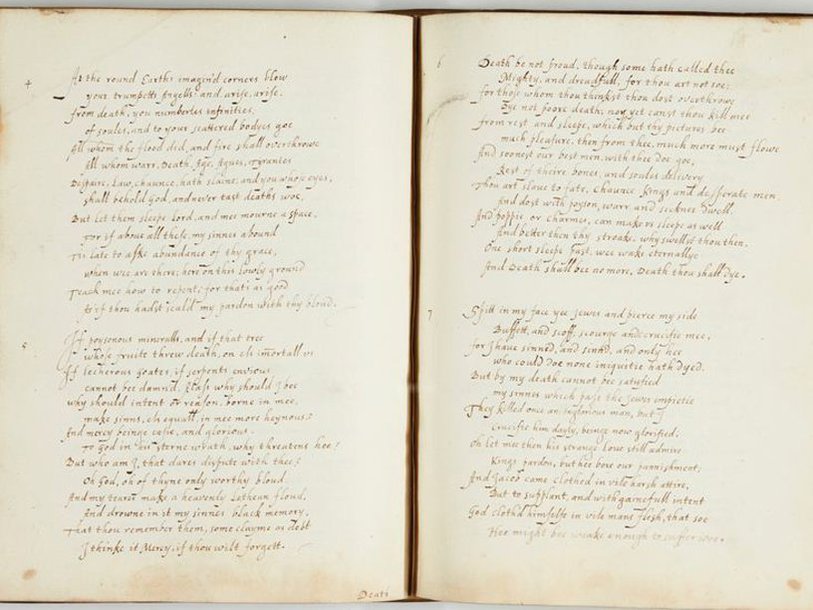 4
At the round Earths imagin'd corners, blow
your trumpetts Angells and arise, arise.
from death, you numberles infinities,
of soules, and to your scattered bodyes goe
All whom the flood did, and fire shall overthrowe
All whom warr, Death, Age, Agues, Tyrannies
Despaire, Law, chaunce, hath slaine, and you whose eyes,
shall behold god, and never tast deaths woe,
But let them sleepe lord, and mee mourne a space,
for if above all these, my sinnes abound
Tis late to aske abundance of thy grace,
when wee are there; here on this lowly ground
Teach mee how to repent; for thats as good
As if thou hadst seal'd my pardon with thy bloud.
5
If poysonous mineralls, and if that tree
whose fruite threw death, on els imortall us
If lecherous goates, if serpents envious
cannot bee damn'd, Alass why should I bee
why should intent or reason, borne in mee,
make sinns, els equall, in mee more heynous?
And mercy beinge easie, and glorious
To God in his sterne wrath, why threatens hee?
But who am I, that dares dispute with thee?
Oh God, oh of thyne only worthy bloud
And my teares make a heavenly Lethean floud,
And drowne in it my sinnes black memory.
That thou remember them, some clayme as debt
I thinke it Mercy, if thou wilt forgett.
Death
6
Death be not proud, though some hath called thee
Mighty, and dreadfull, for thou art not soe;
for those whom thou thinkst thou dost overthrowe
Dye not poore death, nor yet canst thou kill mee
from rest and sleepe, which but thy pictures bee
much pleasure, then from thee, much more must flowe
And soonest our best men, with thee doe goe,
Rest of theire bones, and soules delivery
Thou art slave to fate, Chaunce Kings and desperate men,
And dost with poyson, warr and sicknes dwell,
And poppie or charmes, can make us sleepe as well
And better then thy stroake, why swellst thou then.
One short sleepe past, wee wake eternallye
And Death shall bee no more, Death thou shalt dye.
7
Spitt in my face yee Jewes and pierce my side
Buffett, and scoff, scourge and crucifie mee,
for I have sinned, and sinnd, and only hee
who could doe none iniquitie hath dyed.
But by my death cannot bee satisfied
my sinnes which passe the Jewes impietie
They killed once an inglorious man, but I
Crucifie him dayly, beinge now glorified.
Oh let mee then his strange love still admire
Kings pardon, but hee bore our punnishment;
And Jacob came clothed in vile harsh attire,
But to supplant, and with gainefull intent
God cloth'd himselfe in vile mans flesh, that soe
Hee might bee weake enough to suffer woe.